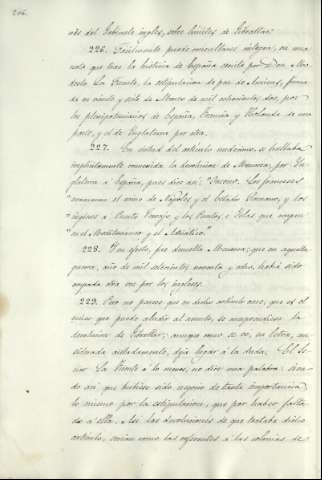 206.
nes del Gabinete ingles, sobre límites de Gibraltar.
226. Finalmente puede miscellanea integra, en una
nota que trae la historia de España escrita por Don Mo
desto La Fuente, la estipulacion de paz de Amiens, firma
da en veinte y siete de Marzo de mil ochocientos dos, por
los plenipotenciarios de España, Francia y Holanda de una
parte, y el de Inglaterra por otra.
227. En virtud del artículo undécimo, se hallaba
implícitamente convenida la devolucion de Menorca, por In
glaterra a España, pues dice así: "Onceno. Los franceses
"evacuarán el reino de Nápoles y el Estado Romano, y los
"ingleses a Puerto Ferrajo y los Puertos, e Islas que ocupen
"en el Mediterráneo y el Adriático."
228. Y en efecto, fue devuelta Menorca; que en aquella
guerra, año de mil setecientos noventa y ocho, habia sido
ocupada otra vez por los ingleses.
229. Pero no parece que en dicho artículo once, que es el
único que puede aludir al asunto, se comprendiese la
devolucion de Gibraltar; aunque como se ve, su letra, con
siderada aisladamente, deja lugar a la duda. El Se
ñor La Fuente a lo menos, no dice una palabra; sien
do así que hubiese sido negocio de tanta importancia
lo mismo por la estipulacion, que por haber falta
do a ella. Así las devoluciones de que trataba dicho
artículo, serian como las referentes a las colonias de